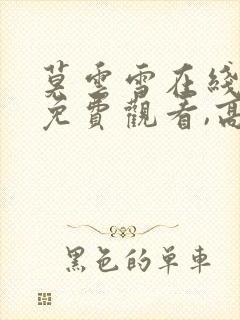 莫雲雪在綫
免費觀看,高
黑色的單車